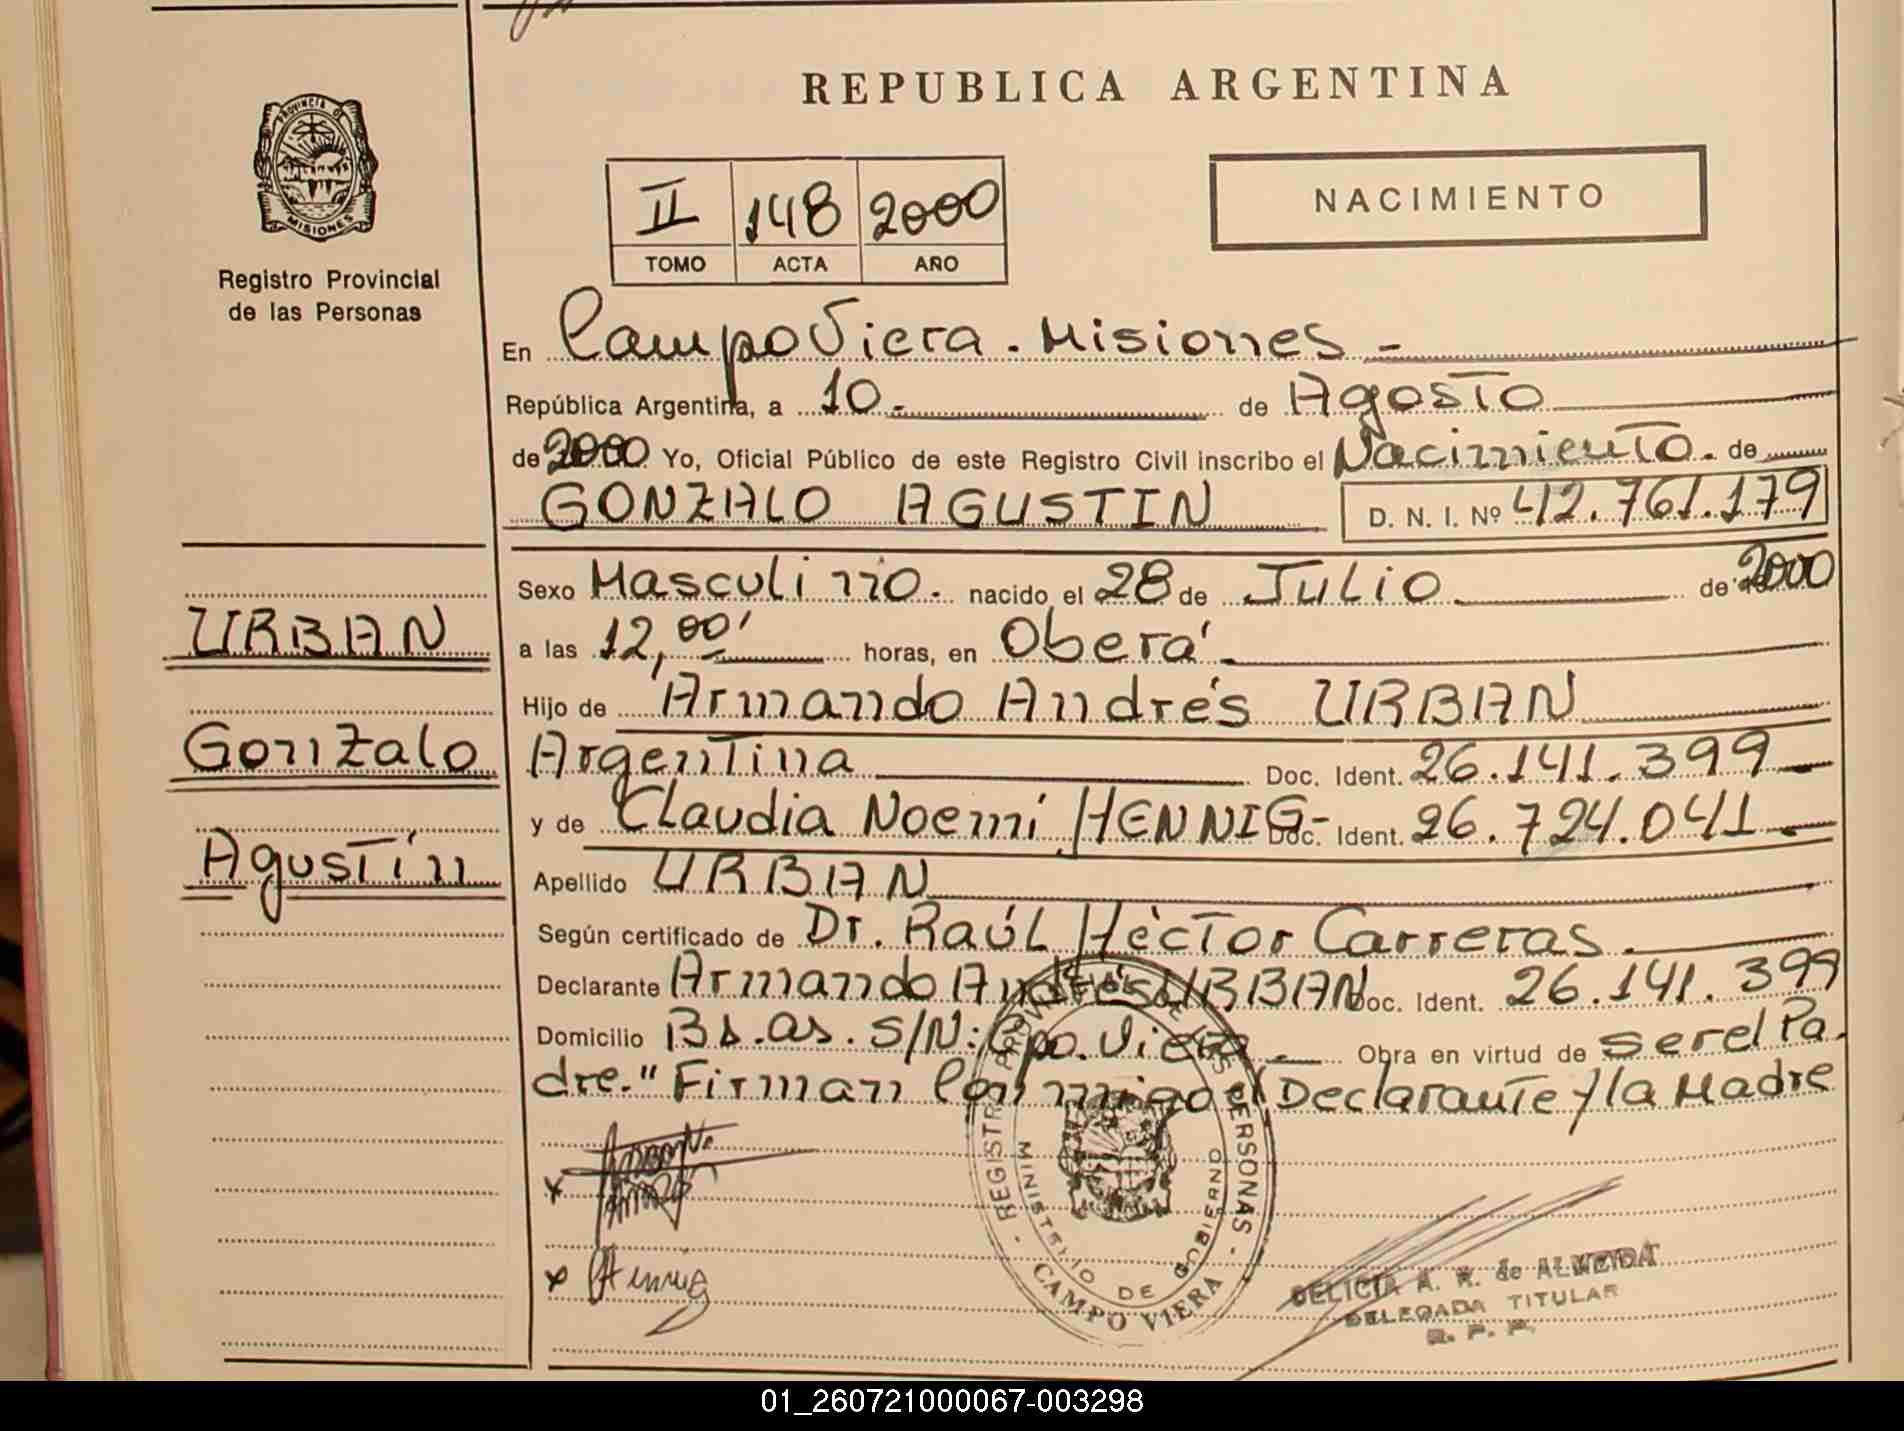 REPUBLICA ARGENTINA
PROVINCIA DE
MISIONES
Registro Provincial
de las Personas
II 148 2000
TOMO ACTA AÑO
NACIMIENTO
En Campo Viera. Misiones -
República Argentina, a 10. de Agosto
de 2000 Yo, Oficial Público de este Registro Civil inscribo el Nacimiento. de
GONZALO AGUSTIN D. N. I. Nº 42.761.179
Sexo Masculino. nacido el 28 de Julio de 2000
a las 12,00' horas, en Oberá.
Hijo de Armando Andrés URBAN
Argentina Doc. Ident. 26.141.399
y de Claudia Noemí HENNIG- Doc. Ident. 26.724.041
Apellido URBAN
Según certificado de Dr. Raúl Hèctor Carreras.
Declarante Armando Andrés URBAN Doc. Ident. 26.141.399
Domicilio Bs.as. S/N: Cpo. Viera. Obra en virtud de ser el Pa-
dre." Firman Conmigo el Declarante y la Madre
URBAN
Gonzalo
Agustín
x
x Hennig
REGISTRO PROVINCIAL DE LAS PERSONAS
MINISTERIO DE GOBIERNO
CAMPO VIERA
DELICIA A. R. de ALMEIDA
DELEGADA TITULAR
R. P. P.
01_260721000067-003298